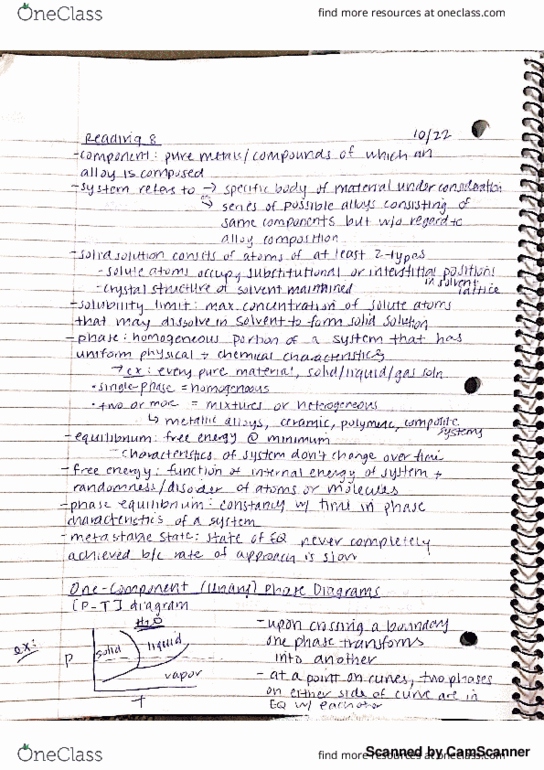 OneClass
find more resources at oneclass.com
Reading 8
10/22
-component: pure metals/compounds of which an
alloy is composed
-system refers to → specific body of material under consideration
→ series of possible alloys consisting of
same components but w/o regard to
alloy composition
-solid solution consists of atoms of at least 2-types
-solute atoms occupy substitutional or interstitial positions
in solvent
lattice
-crystal structure of solvent maintained
-solubility limit: max concentration of solute atoms
that may dissolve in solvent to form solid solution
-phase: homogeneous portion of a system that has
uniform physical + chemical characteristics
→ ex: every pure material, solid/liquid/gas soln
• single-phase = homogenous
• two or more = mixtures or heterogeneous
↳ metallic alloys, ceramic, polymeric, composite
systems
-equilibrium: free energy @ minimum
-characteristics of system don't change over time
-free energy: function of internal energy of system +
randomness/disorder of atoms or molecules
-phase equilibrium: constancy w/ time in phase
characteristics of a system
-metastable state: state of EQ never completely
achieved b/c rate of approach is slow
One-Component (Unary) Phase Diagrams
[P-T] diagram
ex:
H₂O
P
solid
liquid
vapor
T
-upon crossing a boundary
one phase transforms
into another
-at a point on curves, two phases
on either side of curve are in
EQ w/ each other
OneClass
find more resources at oneclass.com
Scanned by CamScanner